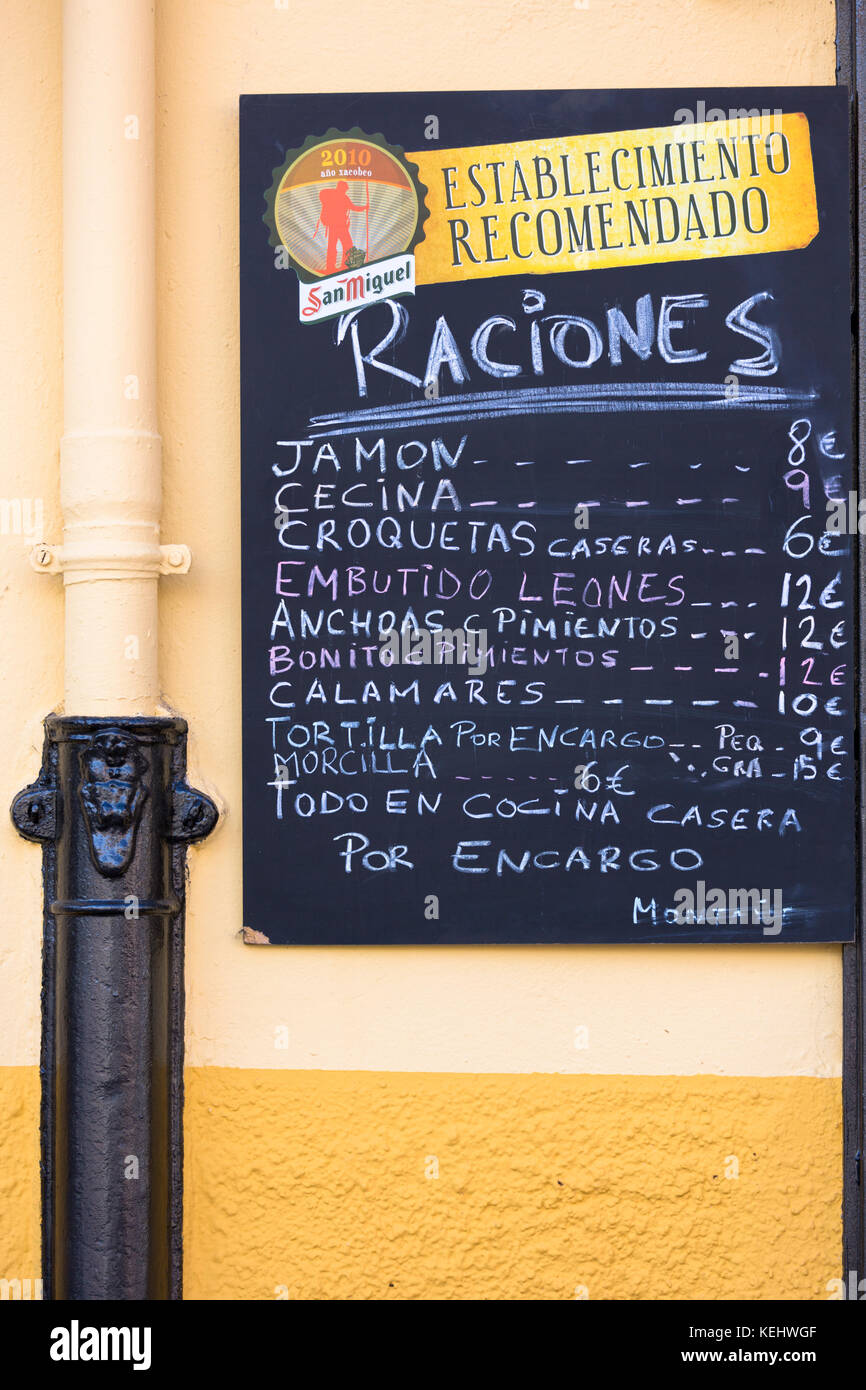 2010
año xacobeo
SanMiguel
ESTABLECIMIENTO
RECOMENDADO
RACIONES
JAMON 8€
CECINA 9€
CROQUETAS CASERAS 6€
EMBUTIDO LEONES 12€
ANCHOAS C PIMIENTOS 12€
BONITO C PIMIENTOS 12€
CALAMARES 10€
TORTILLA POR ENCARGO PEQ 9€
GRA 15€
MORCILLA 6€
TODO EN COCINA CASERA
POR ENCARGO
a
alamy
alamy stock photo
Image ID: KEHWGF
www.alamy.com